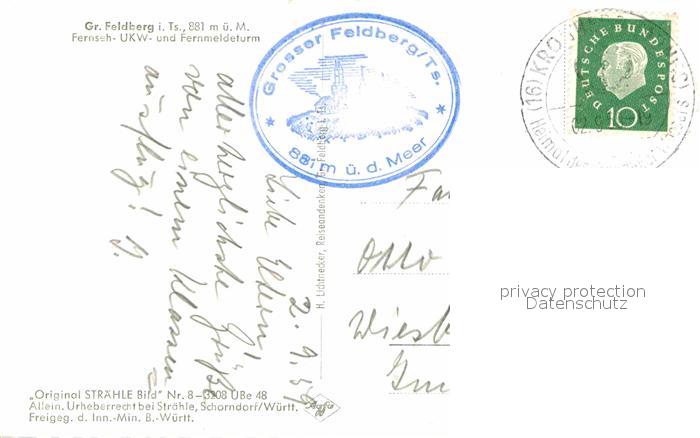 Gr. Feldberg i. Ts., 881 m ü. M.
Fernseh- UKW- und Fernmeldeturm
Grosser Feldberg/Ts.
881 m ü. d. Meer
DEUTSCHE BUNDESPOST
10
(16) KRO
2.9.59
Liebe Eltern!
allerherzlichste Grüße
von einem Klassen=
ausflug!
H. Lichtnecker, Reiseandenken, Gr. Feldberg i. Ts.
Fa
Otto
Wiesb
Im
privacy protection
Datenschutz
„Original STRÄHLE Bild" Nr. 8-3208 UBe 48
Allein. Urheberrecht bei Strähle, Schorndorf/Württ.
Freigeg. d. Inn.-Min. B.-Württ.
Agfa